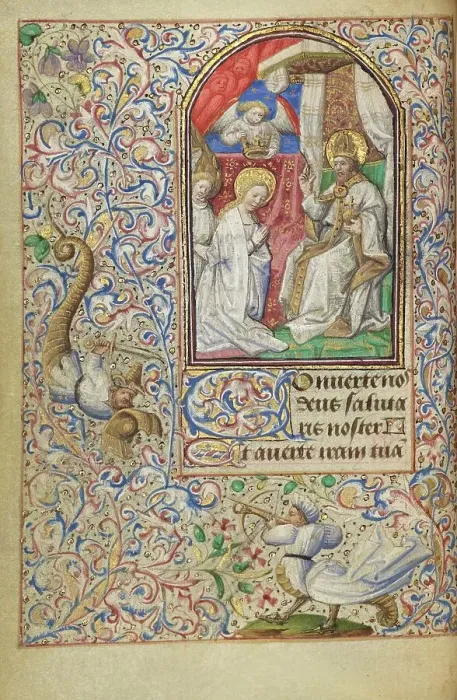 Conuerte no
deus saluta
ris noster
Et auerte iram tuā